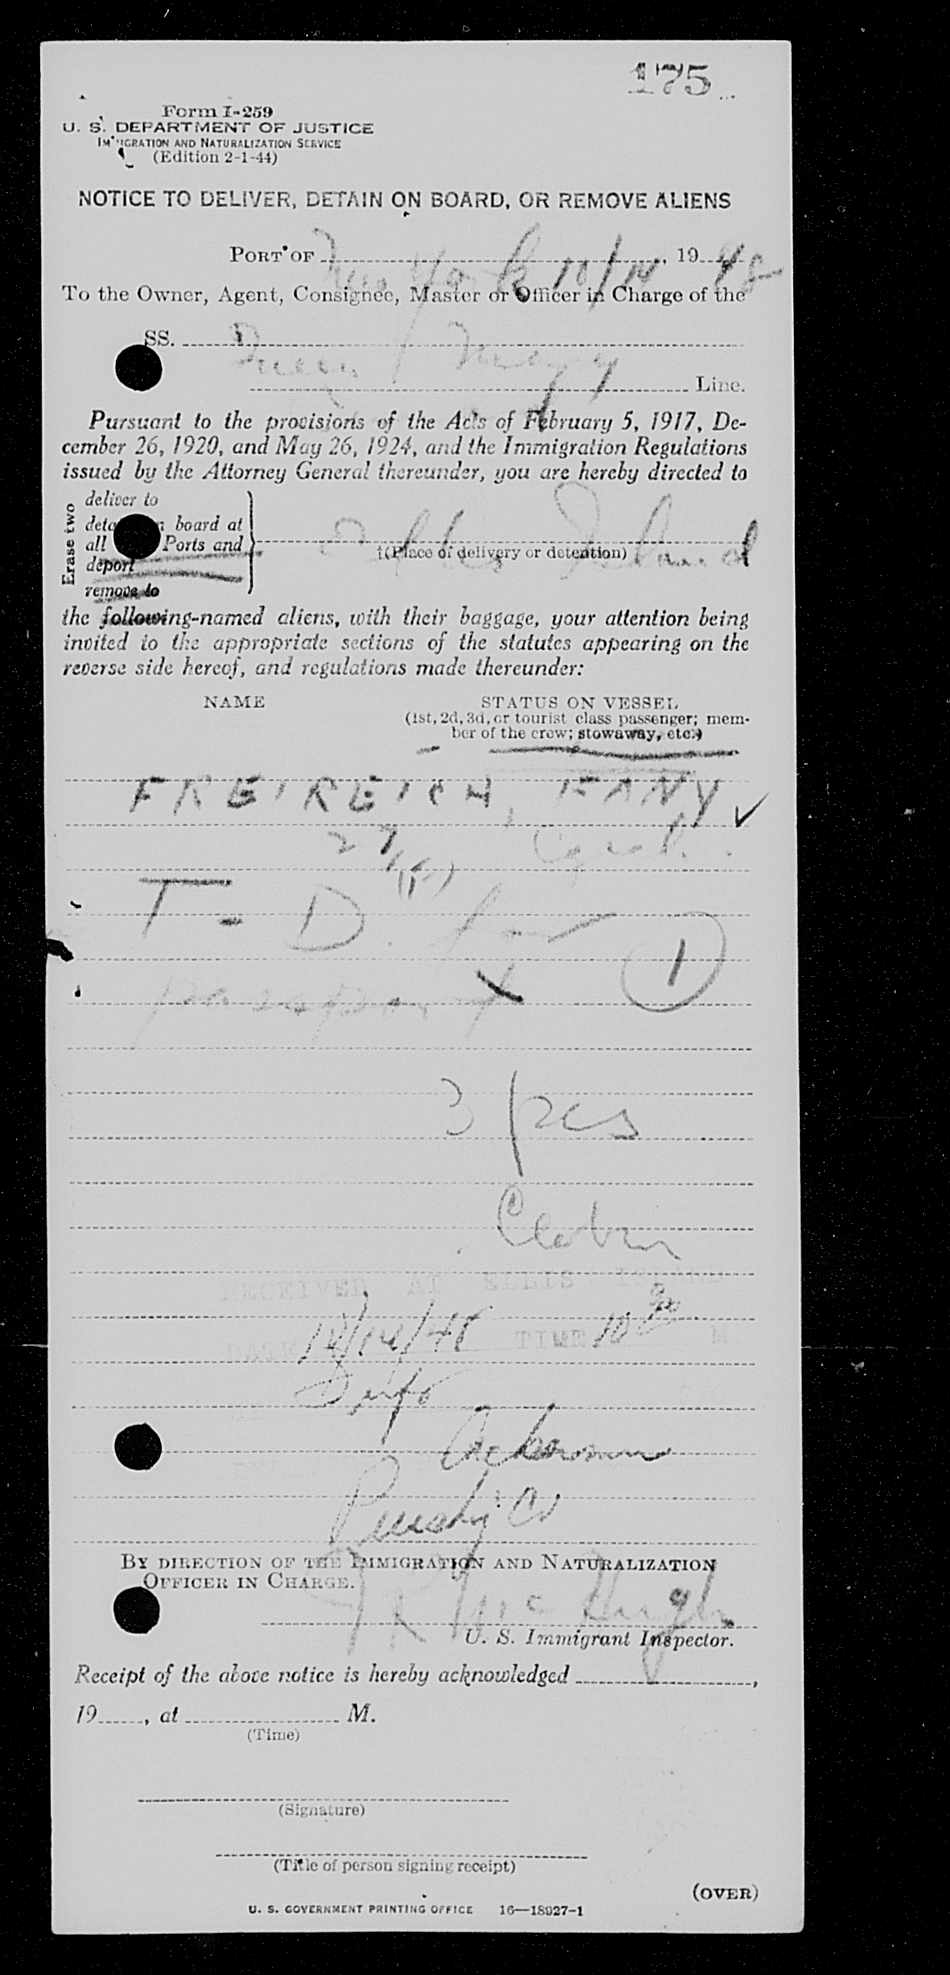 175
Form I-259
U. S. DEPARTMENT OF JUSTICE
IMMIGRATION AND NATURALIZATION SERVICE
(Edition 2-1-44)
NOTICE TO DELIVER, DETAIN ON BOARD, OR REMOVE ALIENS
PORT OF New York 10/14, 1948
To the Owner, Agent, Consignee, Master or Officer in Charge of the
SS. Queen Mary
Line.
Pursuant to the provisions of the Acts of February 5, 1917, De-
cember 26, 1920, and May 26, 1924, and the Immigration Regulations
issued by the Attorney General thereunder, you are hereby directed to
Erase two
deliver to
board at
all Ports and
deport
remove to
Ellis Island
(Place of delivery or detention)
the following-named aliens, with their baggage, your attention being
invited to the appropriate sections of the statutes appearing on the
reverse side hereof, and regulations made thereunder:
NAME STATUS ON VESSEL
(1st, 2d, 3d, or tourist class passenger; mem-
ber of the crew; stowaway, etc.)
FREIREICH, FANY ✓
27 (F)
T-D. for
passport
1
3 pcs
Cabin
RECEIVED AT ELLIS ISLAND
DATE 10/14/48 TIME 10 30 M
Ackerman
BY DIRECTION OF THE IMMIGRATION AND NATURALIZATION
OFFICER IN CHARGE.
McHugh
U. S. Immigrant Inspector.
Receipt of the above notice is hereby acknowledged ,
19 , at M.
(Time)
(Signature)
(Title of person signing receipt)
(OVER)
U. S. GOVERNMENT PRINTING OFFICE 16—18927-1